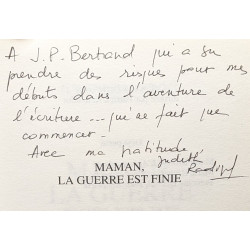 A J.P. Bertrand qui a su
prendre des risques pour mes
débuts dans l'aventure de
l'écriture... qui ne fait que
commencer.
Avec ma gratitude
Judith
MAMAN,
LA GUERRE EST FINIE